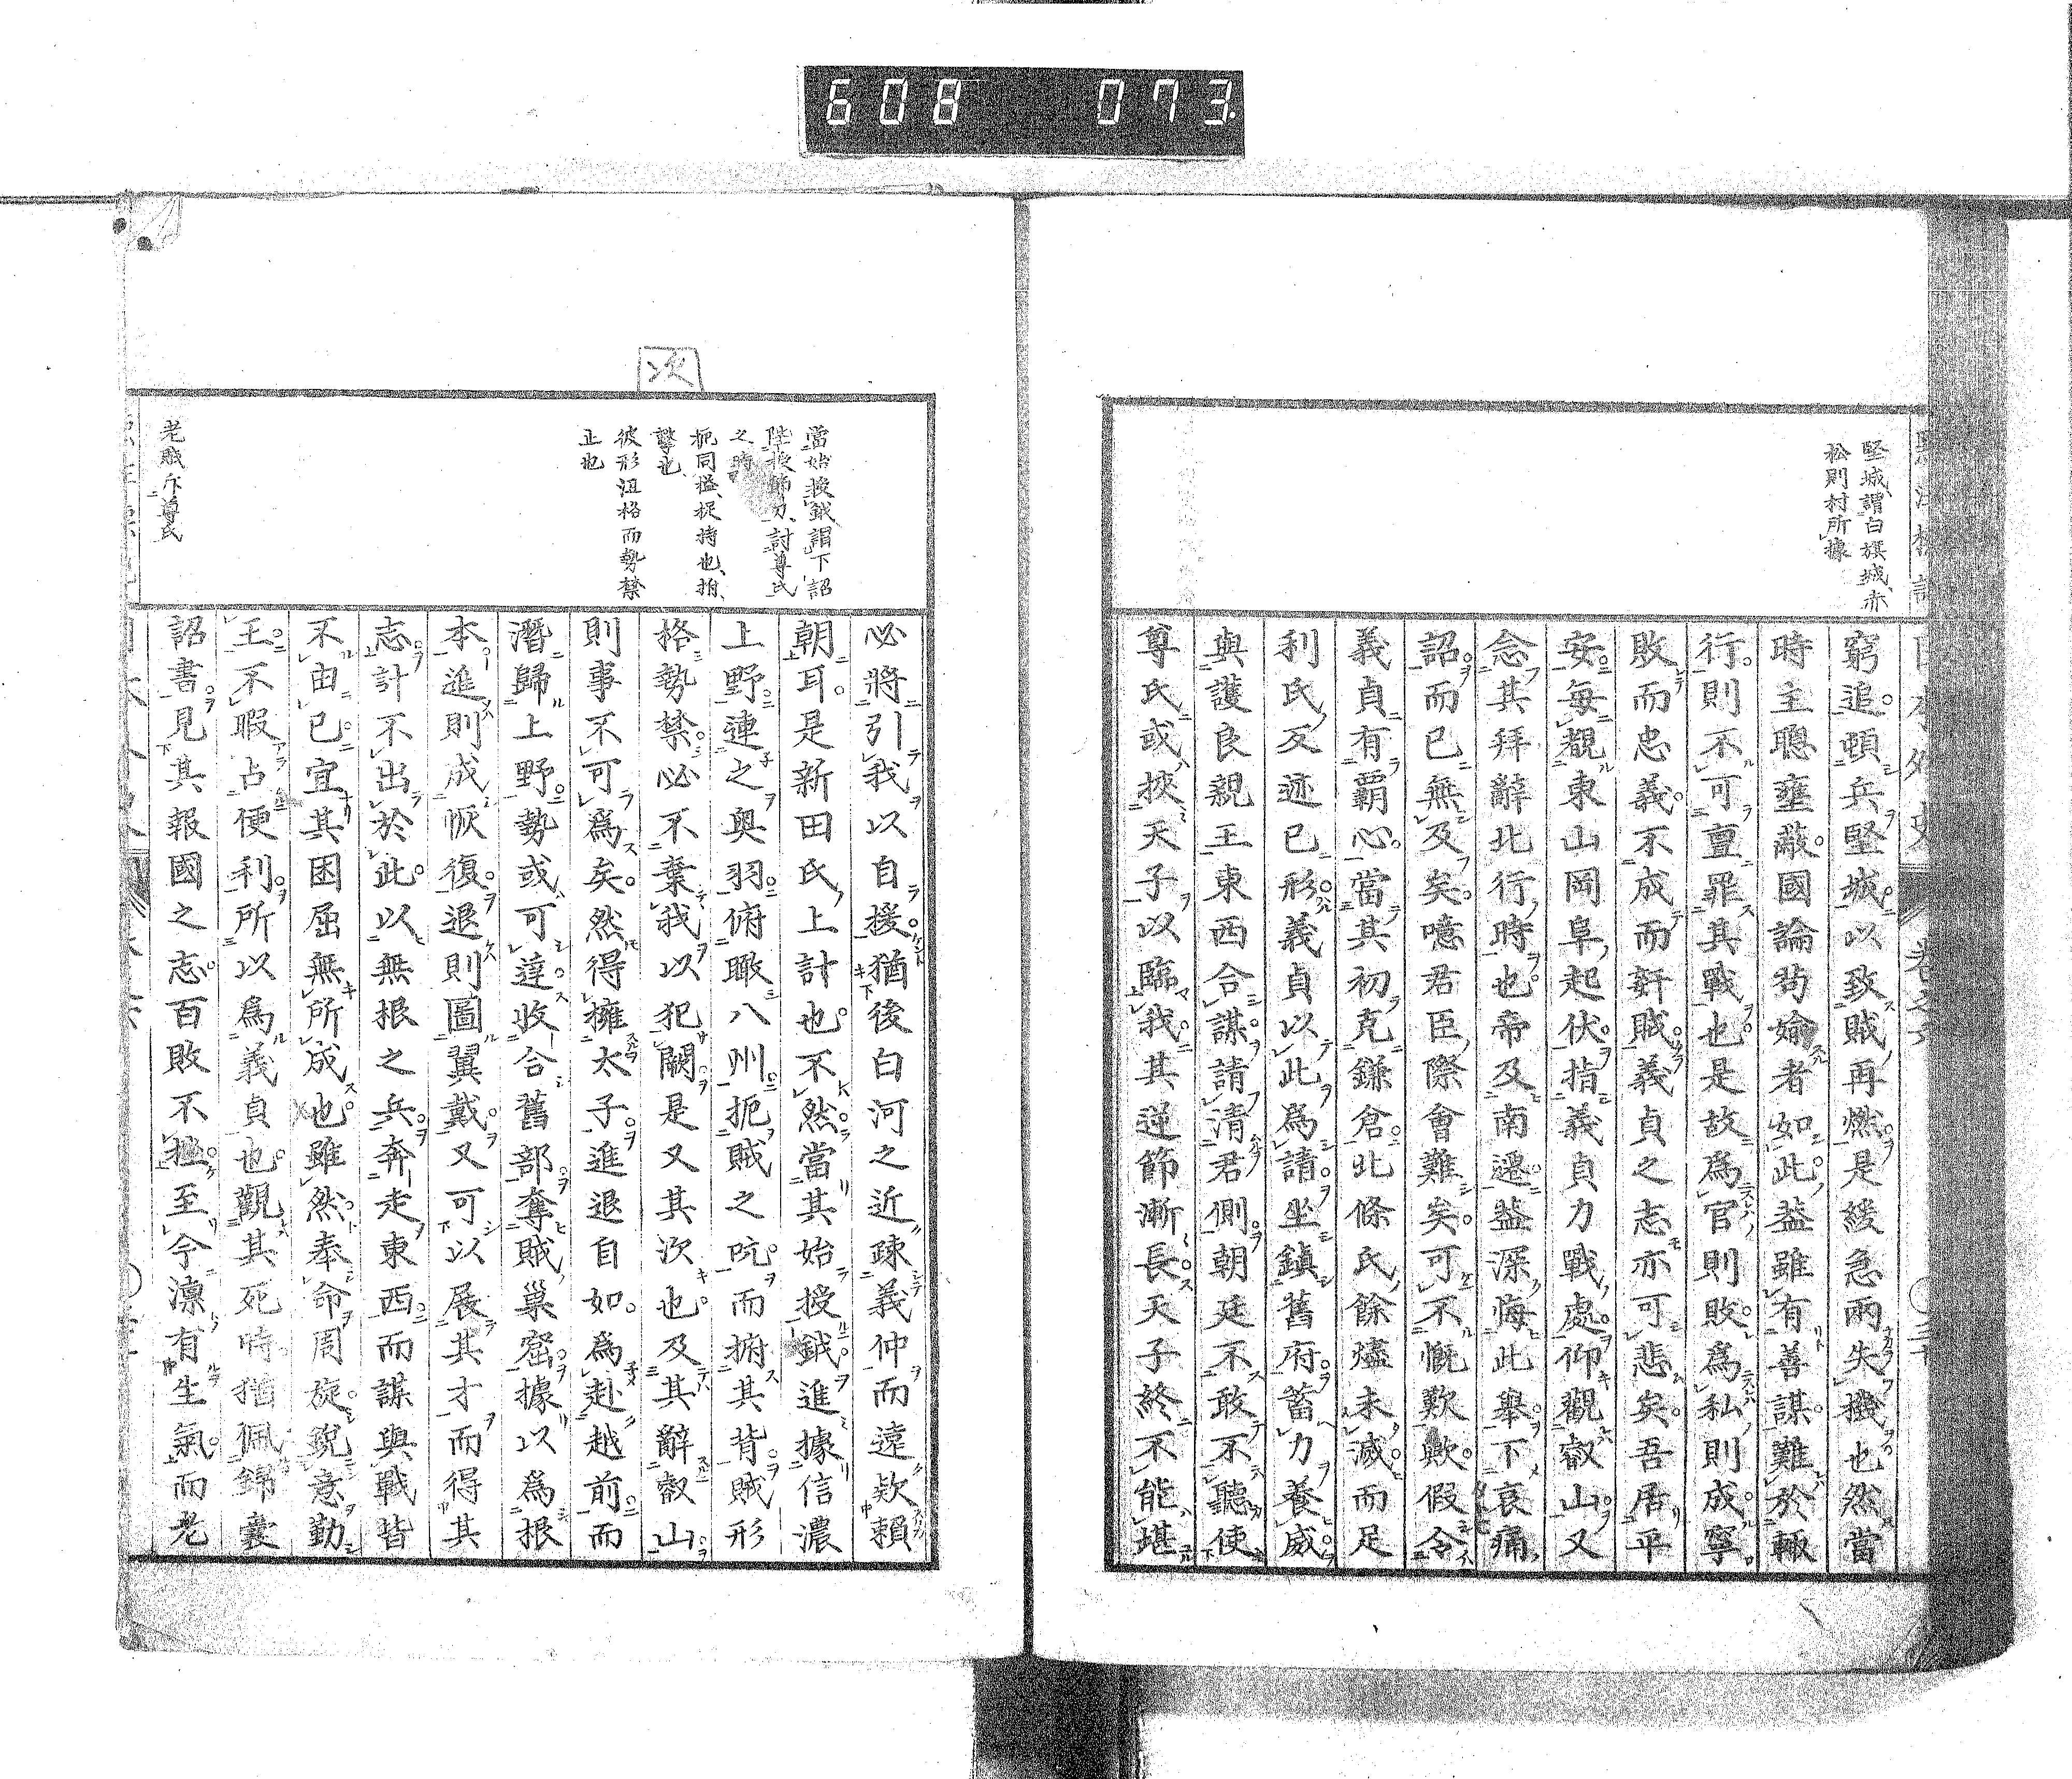 608 073.
堅城、謂白旗城、赤
松則村所據
窮追。頓兵堅城以致賊再燃。是緩急兩失機也然當
時主聰壅蔽。國論苟婾者如此。益雖有善謀。難於輙
行。則不可亶罪其戰也是故爲官則敗爲私則成。寧
敗而忠義。不成而奸賊義貞之志亦可悲矣。吾居平
安每覩東山岡阜起伏指義貞力戰處仰觀叡山又
念其拜辭北行時也。帝及南遷益深悔此舉下哀痛
詔而已無及矣。噫君臣際會難矣。可不慨歎歟。假令
義貞有霸心。當其初克鎌倉。北條氏餘燼未滅而足
利氏反迹已形義貞以此爲請坐鎮舊府蓄力養威
與護良親王東西合謀。請清君側。朝廷不敢不聽使
尊氏或挾天子以臨我其逆節漸長。天子終不能堪
次
當始授鉞謂下詔
陞授節刀、討尊氏
之時
扼同搤、捉持也、捬、
擊也、
彼形沮格而勢禁
止也
老賊斥尊氏
必將引我以自援猶後白河之近疎義仲而遠欵賴
朝耳。是新田氏上計也。不然當其始授鉞進據信濃
上野連之奥羽俯瞰八州扼賊之吭而捬其背賊形
格勢禁必不棄我以犯闕是又其次也。及其辭叡山
則事不可爲矣。然得擁太子進退自如。爲赴越前而
潛歸上野勢或可莚收合舊部奪賊巢窟據以爲根
本進則成恢復退則圖翼戴又可以展其才而得其
志計不出於此。以無根之兵奔走東西而謀與戰皆
不由已宜其困屈無所成也雖然奉命周旋銳意勤
王不暇占便利所以爲義貞也。觀其死時猶佩錦囊
詔書見其報國之志。百敗不撓至今凛有生氣。而老